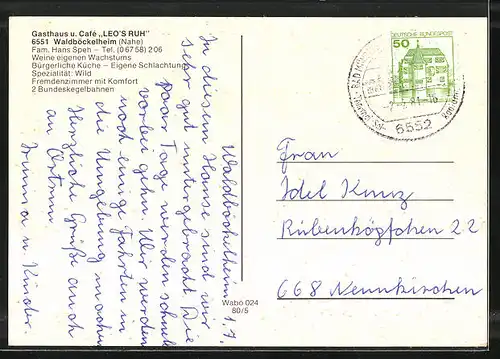 Gasthaus u. Café „LEO'S RUH"
6551 Waldböckelheim (Nahe)
Fam. Hans Speh – Tel. (0 67 58) 2 06
Weine eigenen Wachstums
Bürgerliche Küche – Eigene Schlachtung
Spezialität: Wild
Fremdenzimmer mit Komfort
2 Bundeskegelbahnen
Waldböckelheim, 1.7.
In diesem Hause sind wir
sehr gut untergebracht. Die
paar Tage werden schnell
vorbei gehn. Wir werden
noch einige Fahrten in
die Umgebung machen
Herzliche Grüße auch
an Ortrun.
Irmma u. Kinder.
Wabo 024
80/5
DEUTSCHE BUNDESPOST
50
BAD MÜNSTER
6552
Frau
Idel Kunz
Rübenköpfchen 22
668 Neunkirchen